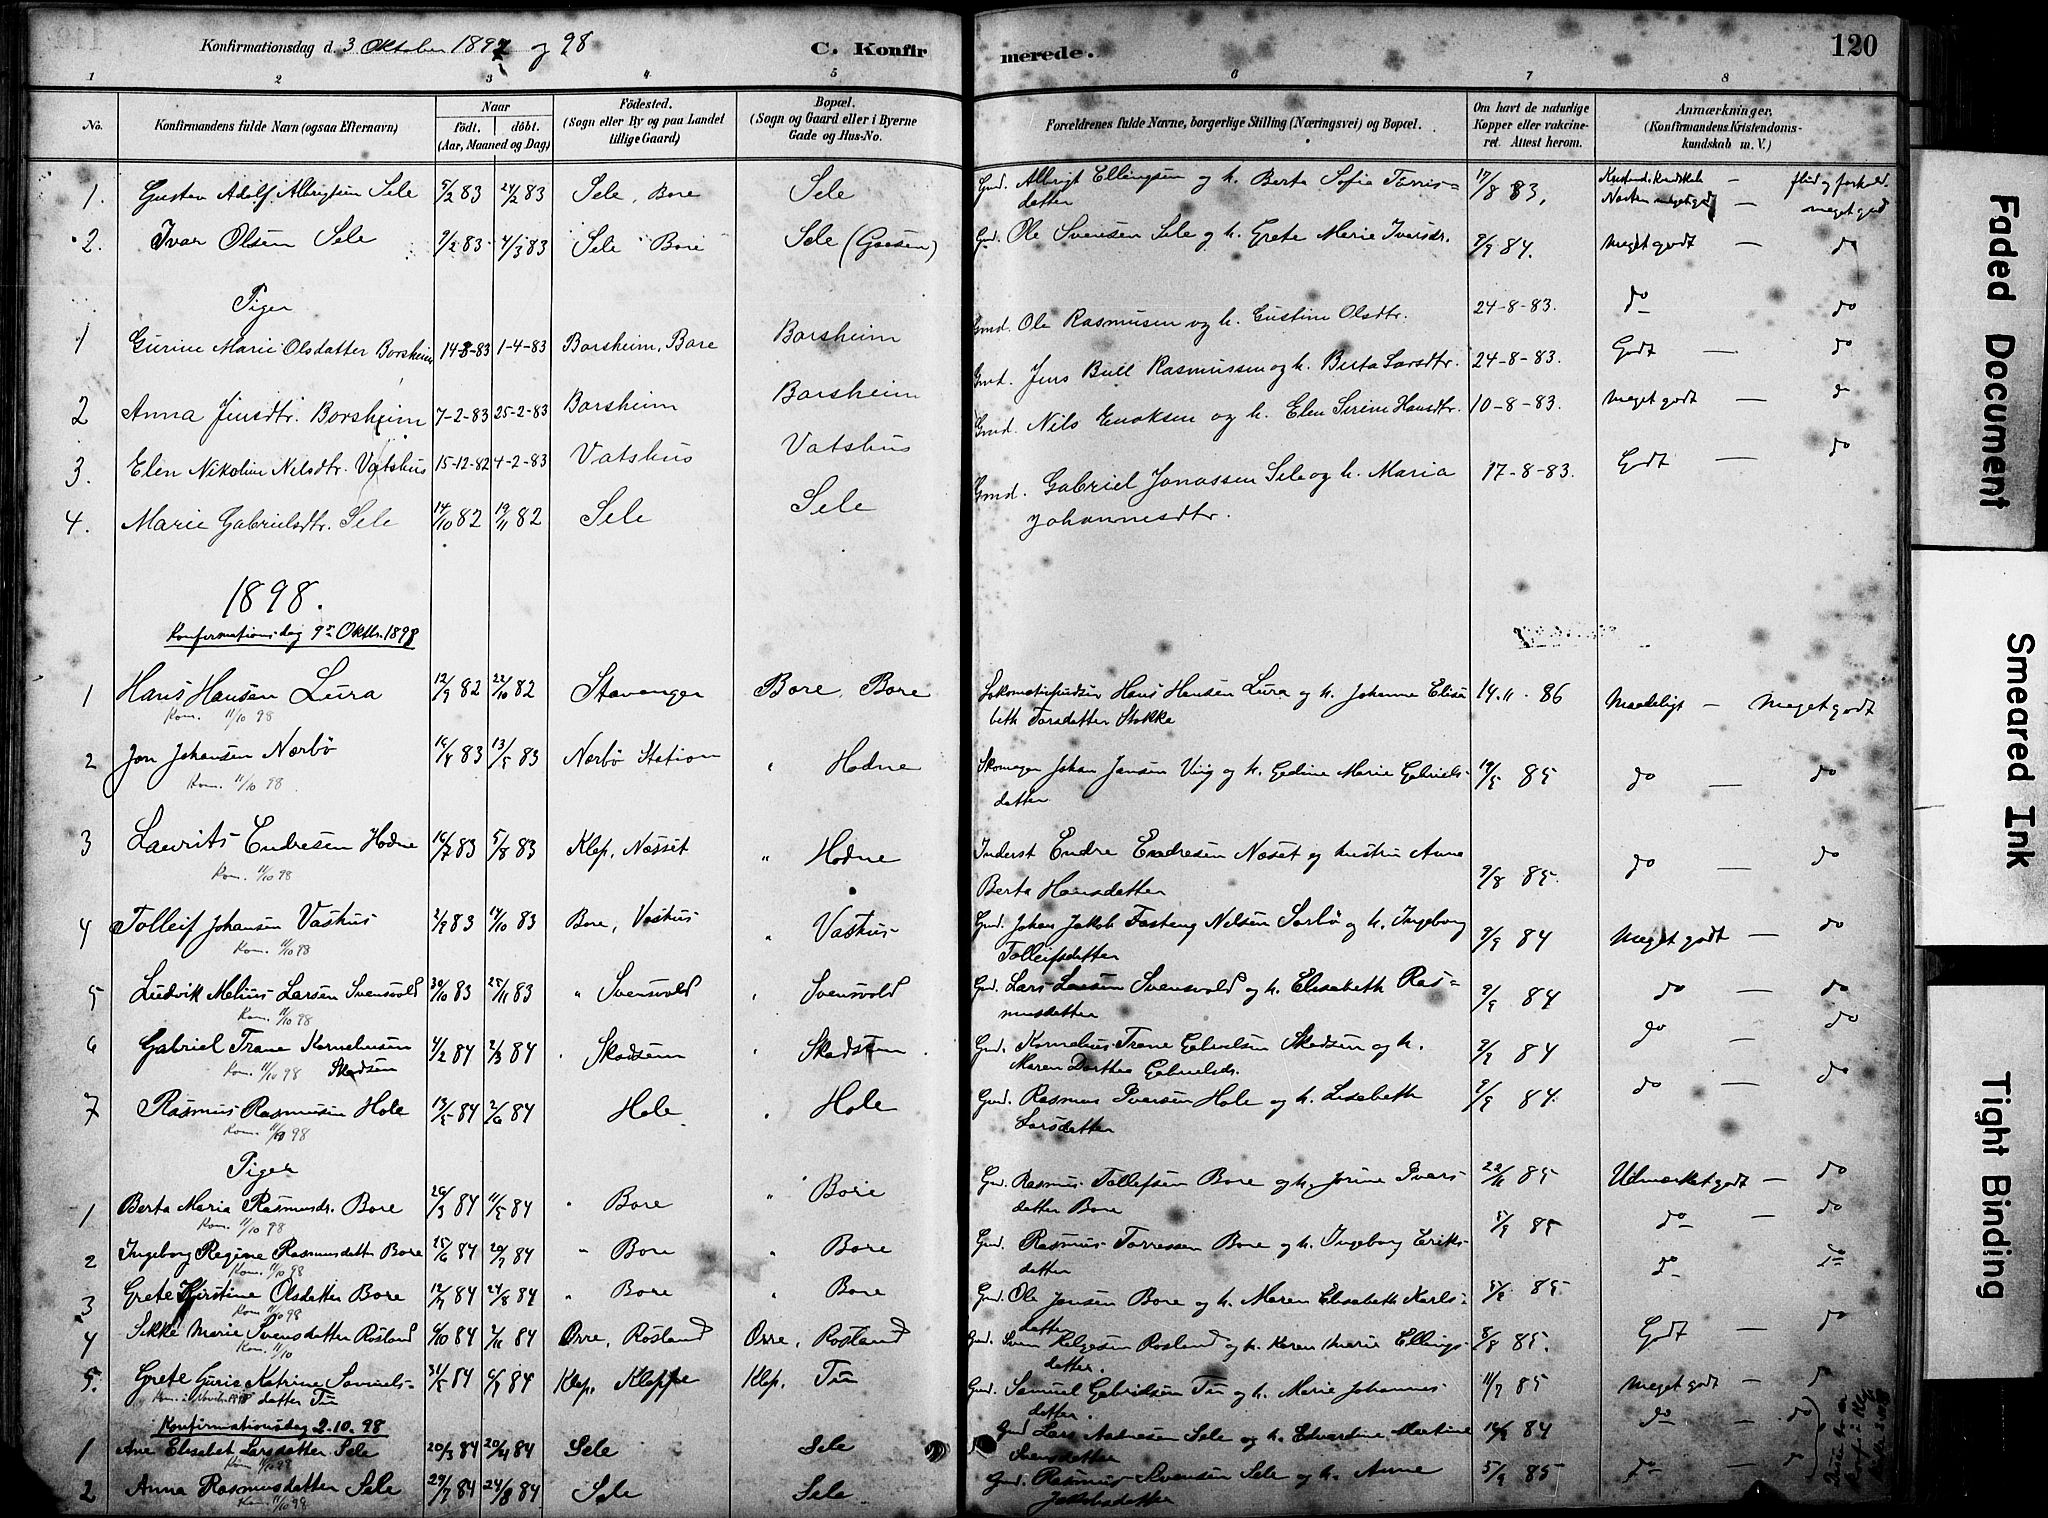 Konfirmationsdag d. 3 Oktober 1897 og 98
C. Konfirmerede.
120
1 2 3 4 5 6 7 8
No.
Konfirmandens fulde Navn (ogsaa Efternavn)
Naar
födt. döbt.
(Aar, Maaned og Dag)
Födested.
(Sogn eller By og paa Landet
tillige Gaard)
Bopæl.
(Sogn og Gaard eller i Byerne
Gade og Hus-No.
Forældrenes fulde Navne, borgerlige Stilling (Næringsvei) og Bopæl.
Om havt de naturlige
Kopper eller vakcine-
ret. Attest herom.
Anmærkninger,
(Konfirmandens Kristendoms-
kundskab m. V.)
1. Gustav Adolf Albrigtsen Sele 5/2 83 24/2 83 Sele, Bore Sele Gmd. Albrigt Ellingsen og h. Berta Sofia Torris= 17/8 83,
datter
meget godt
2. Ivar Olsen Sele 9/2 83 4/3 83 Sele Bore Sele (Gaasen) Gmd. Ole Svensen Sele og h. Grete Marie Ivarsdr. 9/9 84. meget godt — do
Piger
1 Gurine Marie Olsdatter Borsheim 14-3-83 1-4-83 Borsheim, Bore Borsheim Gmd. Ole Rasmusen og h. Gustine Olsdtr. 24-8-83. do do
2 Anna Jensdtr. Borsheim 7-2-83 25-2-83 Borsheim Borsheim Gmd. Jens Bull Rasmussen og h. Berta Larsdtr. 24-8-83. Godt — do
3. Elen Nikoline Nilsdtr. Vatshus 15-12-82 4-2-83 Vatshus Vatshus Gmd. Nils Enoksen og h. Elen Serine Hansdtr. 10-8-83. meget godt — do
4. Marie Gabrielsdtr. Sele 14/10 82 19/11 82 Sele Sele Gmd. Gabriel Jonassen Sele og h. Maria 17-8-83. Godt — do
Johannesdtr.
1898.
Konfirmationsdag 9de Oktbr. 1898
1 Hans Hansen Lura 12/9 82 22/10 82 Stavanger Bore, Bore Hans Hansen Lura og h. Johanne Elisa 14.11.86 Maadeligt — Meget godt
Kom. 11/10 98 beth Torsdatter Stokka
2 Jon Johansen Nærbö 16/4 83 13/5 83 Nærbö Station " Hodne Skomager Johan Jansen Ving og h. Gedine Marie Gabriels- 19/5 85 do — do
Kom. 11/10 98. datter
3 Laurits Endresen Hodne 16/7 83 5/8 83 Klep, Næsset " Hodne Inderst Endre Endresen Næset og hustru Anna 9/8 85. do do
Kom. 11/10 98 Berta Hansdatter
4 Tolleif Johansen Vashus 2/9 83 14/10 83 Bore, Vashus " Vashus Gmd. Johan Jakob Fasteng Nelsen Sørbö og h. Ingeborg 9/9 84 Meget godt — do
Kom. 11/10 98 Tolleifsdatter
5 Ludvik Melius Larsen Svensvold 30/10 83 25/11 83 " Svensvold " Svensvold Gmd. Lars Larsen Svensvold og h. Elisabeth Ras= 9/9 84 do — do
Kom. 11/10 98 musdatter
6 Gabriel Trane Korneliusen 4/2 84 2/3 84 " Skadsem " Skadsem Gmd. Kornelius Trane Gabrielsen Skadsem og h. 9/9 84 do — do
Kom. 11/10 98 Skadsem Maren Dorthea Gabrielsdr.
7 Rasmus Rasmusen Hole 13/5 84 2/6 84 Hole " Hole Gmd. Rasmus Iversen Hole og h. Lisabeth 9/9 84. do — do
Kom. 11/10 98 Larsdatter
Piger
1 Berta Maria Rasmusdr. Bore 26/3 84 11/5 84 " Bore " Bore Gmd. Rasmus Tollefsen Bore og h. Jorine Ivars 22/11 85 Udmærket godt — do
Kom. 11/10 98 datter Bore
2 Ingeborg Regine Rasmusdatter Bore 25/6 84 20/7 84 " Bore " Bore Gmd. Rasmus Torressen Bore og h. Ingeborg Eriks- 5/9 85 do — do
Kom. 11/10 98 datter
3 Grete Kirstine Olsdatter Bore 12/7 84 24/8 84 " Bore " Bore Gmd. Ole Jensen Bore og h. Maren Elisabeth Karls- 85 do do
Kom 11/10 98 datter
4 Sikke Marie Svensdatter Rosland 6/10 84 2/11 84 Orre, Rosland Orre, Rosland Gmd. Sven Helgesen Rosland og h. Karen Marie Ellings- 8/8 85. Godt — do
Kom. 11/10 datter.
5. Grete Gurie Katrine Samuels- 31/5 84 6/7 84 Klep, Kleppe Klep, Tu Gmd. Samuel Gabrielsen Tu og h. Marie Johannes 11/7 85 Meget godt — do
datter Tu datter.
Konfirmationsdag 2-10-98
1 Ane Elisabet Larsdatter Sele 20/3 84 20/4 84 Sele Sele Gmd Lars Sele og h. Edvardine Martine 84 do — do
Kom 11/10 98 Svensdatter
2 Anna Rasmusdatter Sele 29/7 84 24/8 84 Sele Sele Gmd. Rasmus Svensen Sele og h. Anne 5/9 85 do — do
Kom. 11/10 98 Jakobsdatter
Faded Document
Smeared Ink
Tight Binding